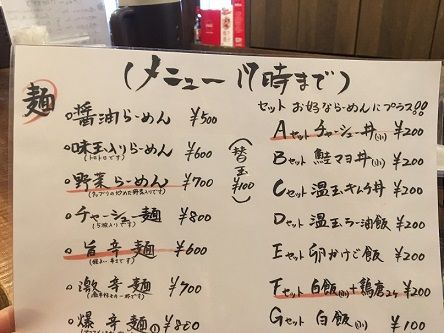 (メニュー 17時まで)
麺
醤油らーめん ¥500
味玉入りらーめん ¥600
(トロトロです)
野菜らーめん ¥700
(タップリの炒めた野菜入りです)
チャーシュー麺 ¥800
(5枚入りです)
旨辛麺 ¥600
激辛麺 ¥700
爆辛麺 ¥800
(替玉 ¥100)
セット お好ならーめんにプラス!!
Aセット チャーシュー丼(小) ¥200
Bセット 鮭マヨ丼(小) ¥200
Cセット 温玉キムチ丼 ¥200
Dセット 温玉ラー油飯 ¥200
Eセット 卵かけご飯 ¥200
Fセット 白飯(小)+鶏唐2ヶ ¥200
Gセット 白飯(小) ¥100